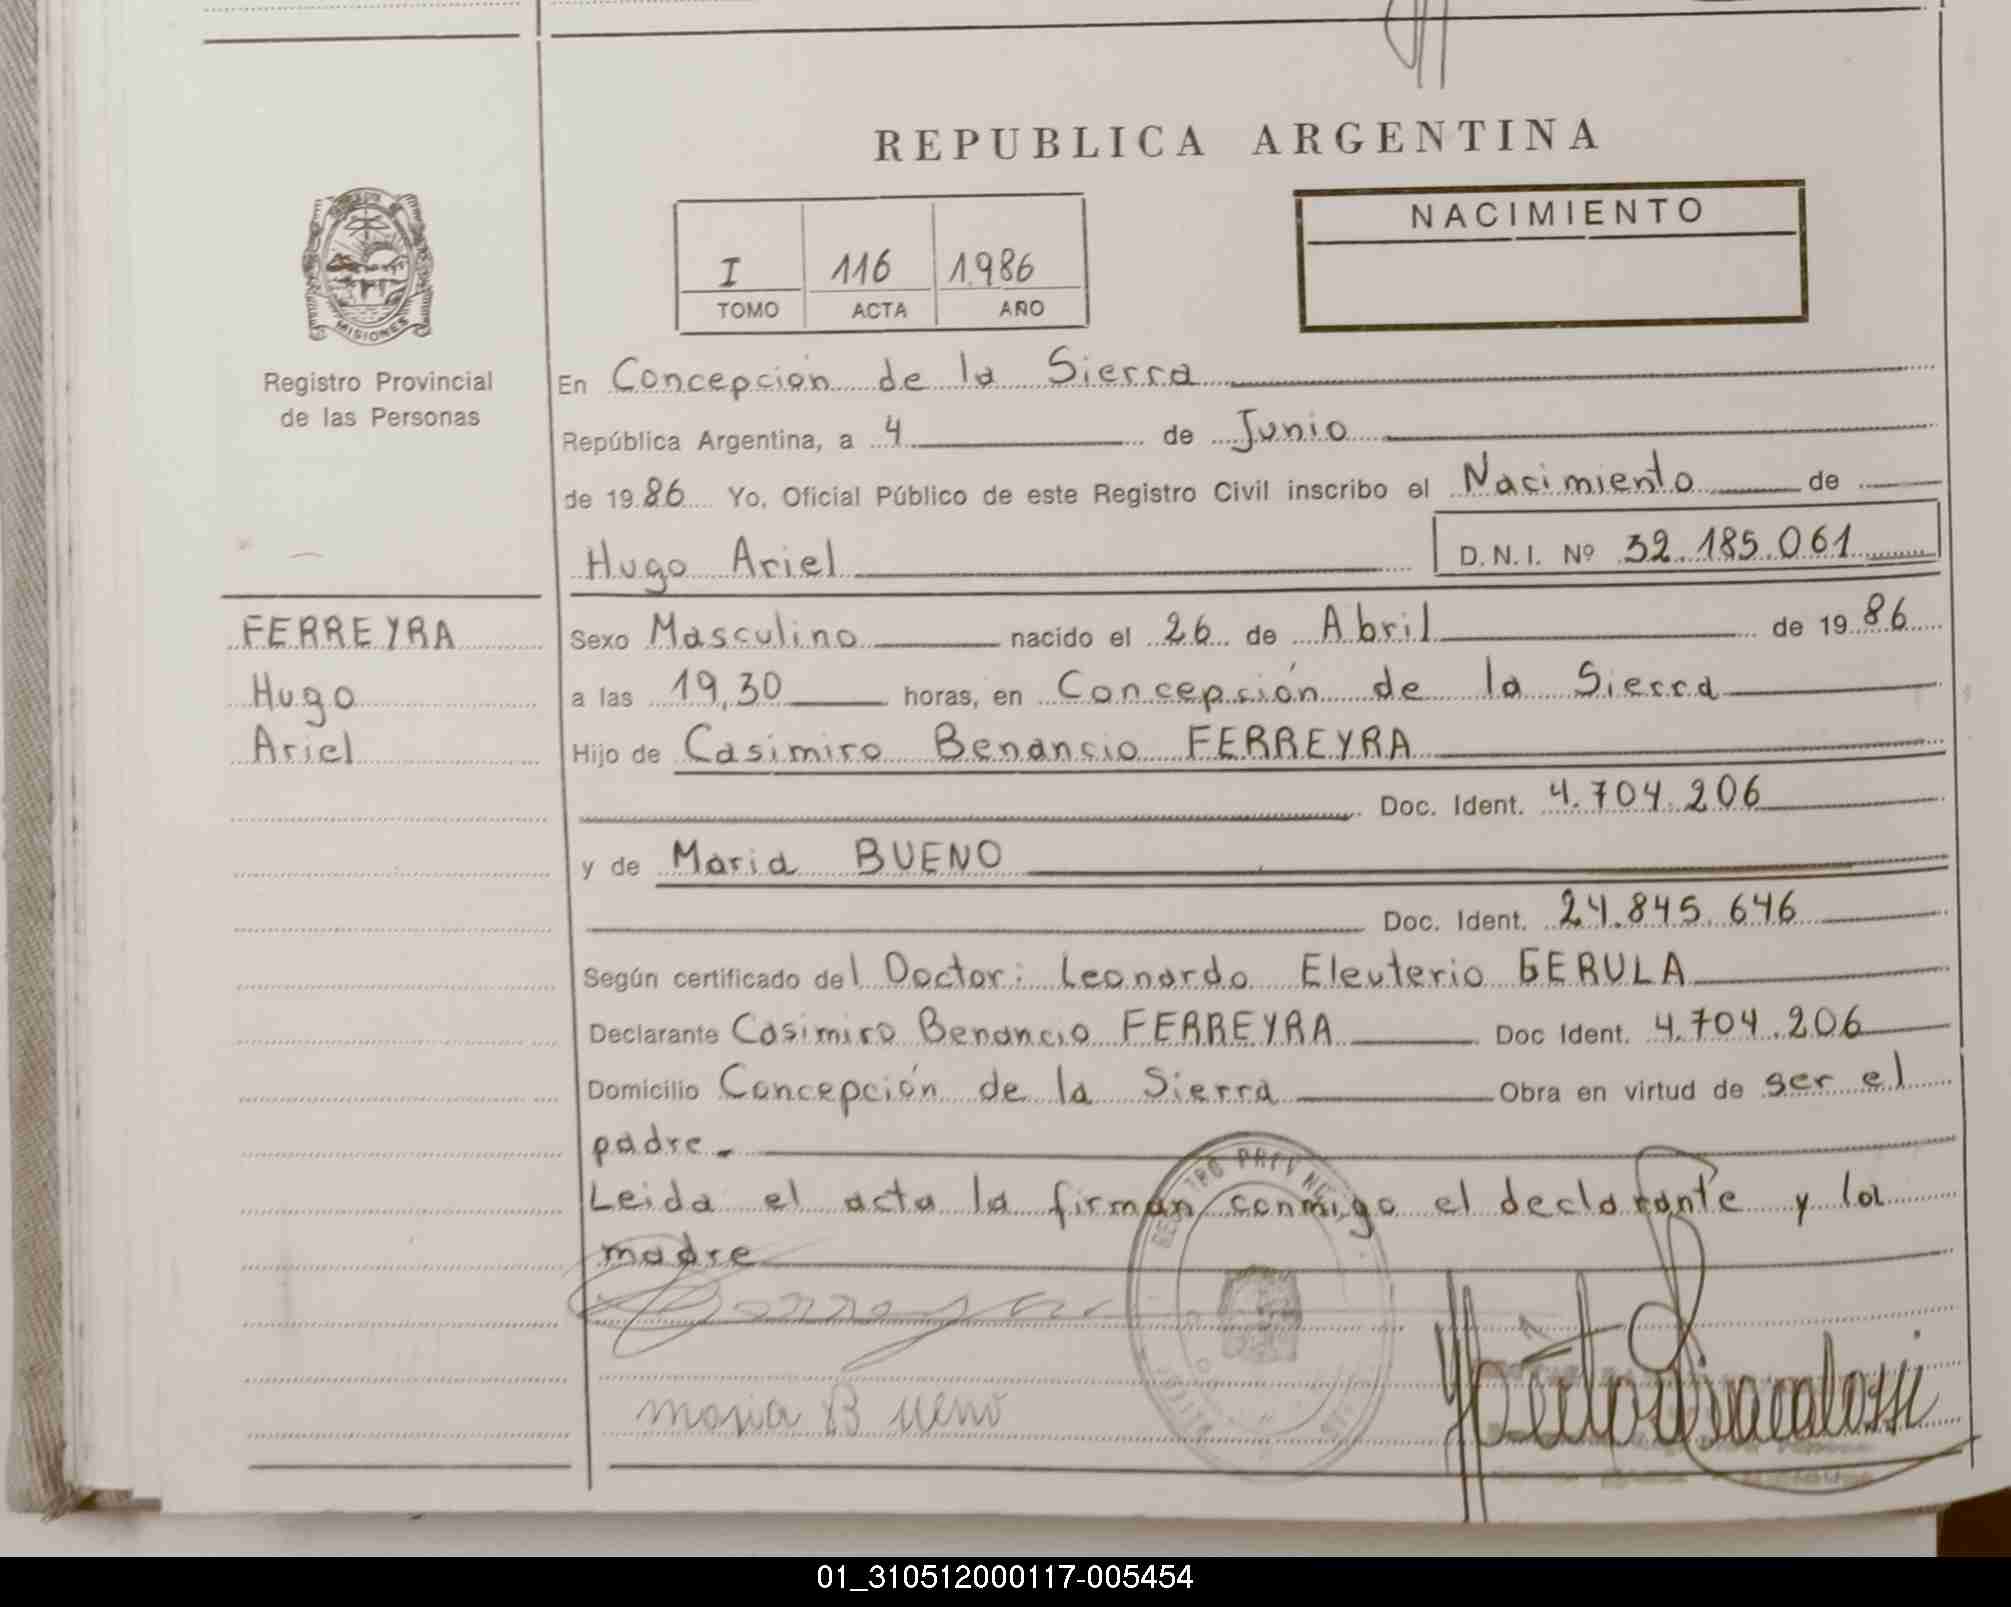 REPUBLICA ARGENTINA
NACIMIENTO
I 116 1.986
TOMO ACTA AÑO
MISIONES
Registro Provincial
de las Personas
FERREYRA
Hugo
Ariel
En Concepción de la Sierra
República Argentina, a 4 de Junio
de 19 86 Yo, Oficial Público de este Registro Civil inscribo el Nacimiento de
Hugo Ariel D.N.I. Nº 32.185.061
Sexo Masculino nacido el 26 de Abril de 19 86
a las 19,30 horas, en Concepción de la Sierra
Hijo de Casimiro Benancio FERREYRA
Doc. Ident. 4.704.206
y de Maria BUENO
Doc. Ident. 24.845.646
Según certificado del Doctor: Leonardo Eleuterio GERULA
Declarante Casimiro Benancio FERREYRA Doc Ident. 4.704.206
Domicilio Concepción de la Sierra Obra en virtud de ser el
padre.
Leida el acta la firman conmigo el declarante y la
madre
maria Bueno
01_310512000117-005454